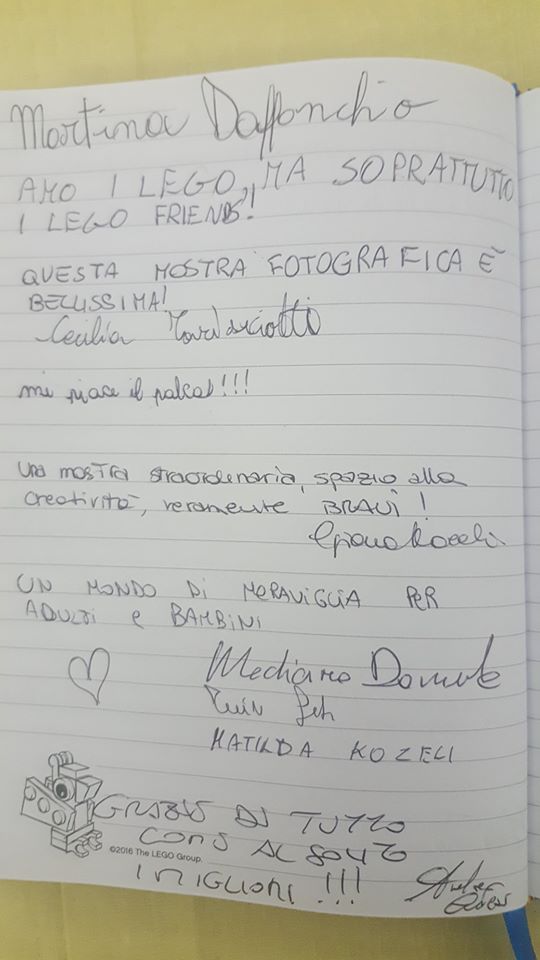 Martina Daffonchio
AMO I LEGO, MA SOPRATTUTTO
I LEGO FRIENDS!
QUESTA MOSTRA FOTOGRAFICA È
BELLISSIMA!
Cecilia
mi piace il palco!!!
Una mostra straordinaria, spazio alla
creatività, veramente BRAVI!
UN MONDO DI MERAVIGLIA PER
ADULTI e BAMBINI
Mediano
MATILDA KOZELI
GRAZIE DI TUTTO
COME AL SOLITO
©2016 The LEGO Group.
I MIGLIORI!!!